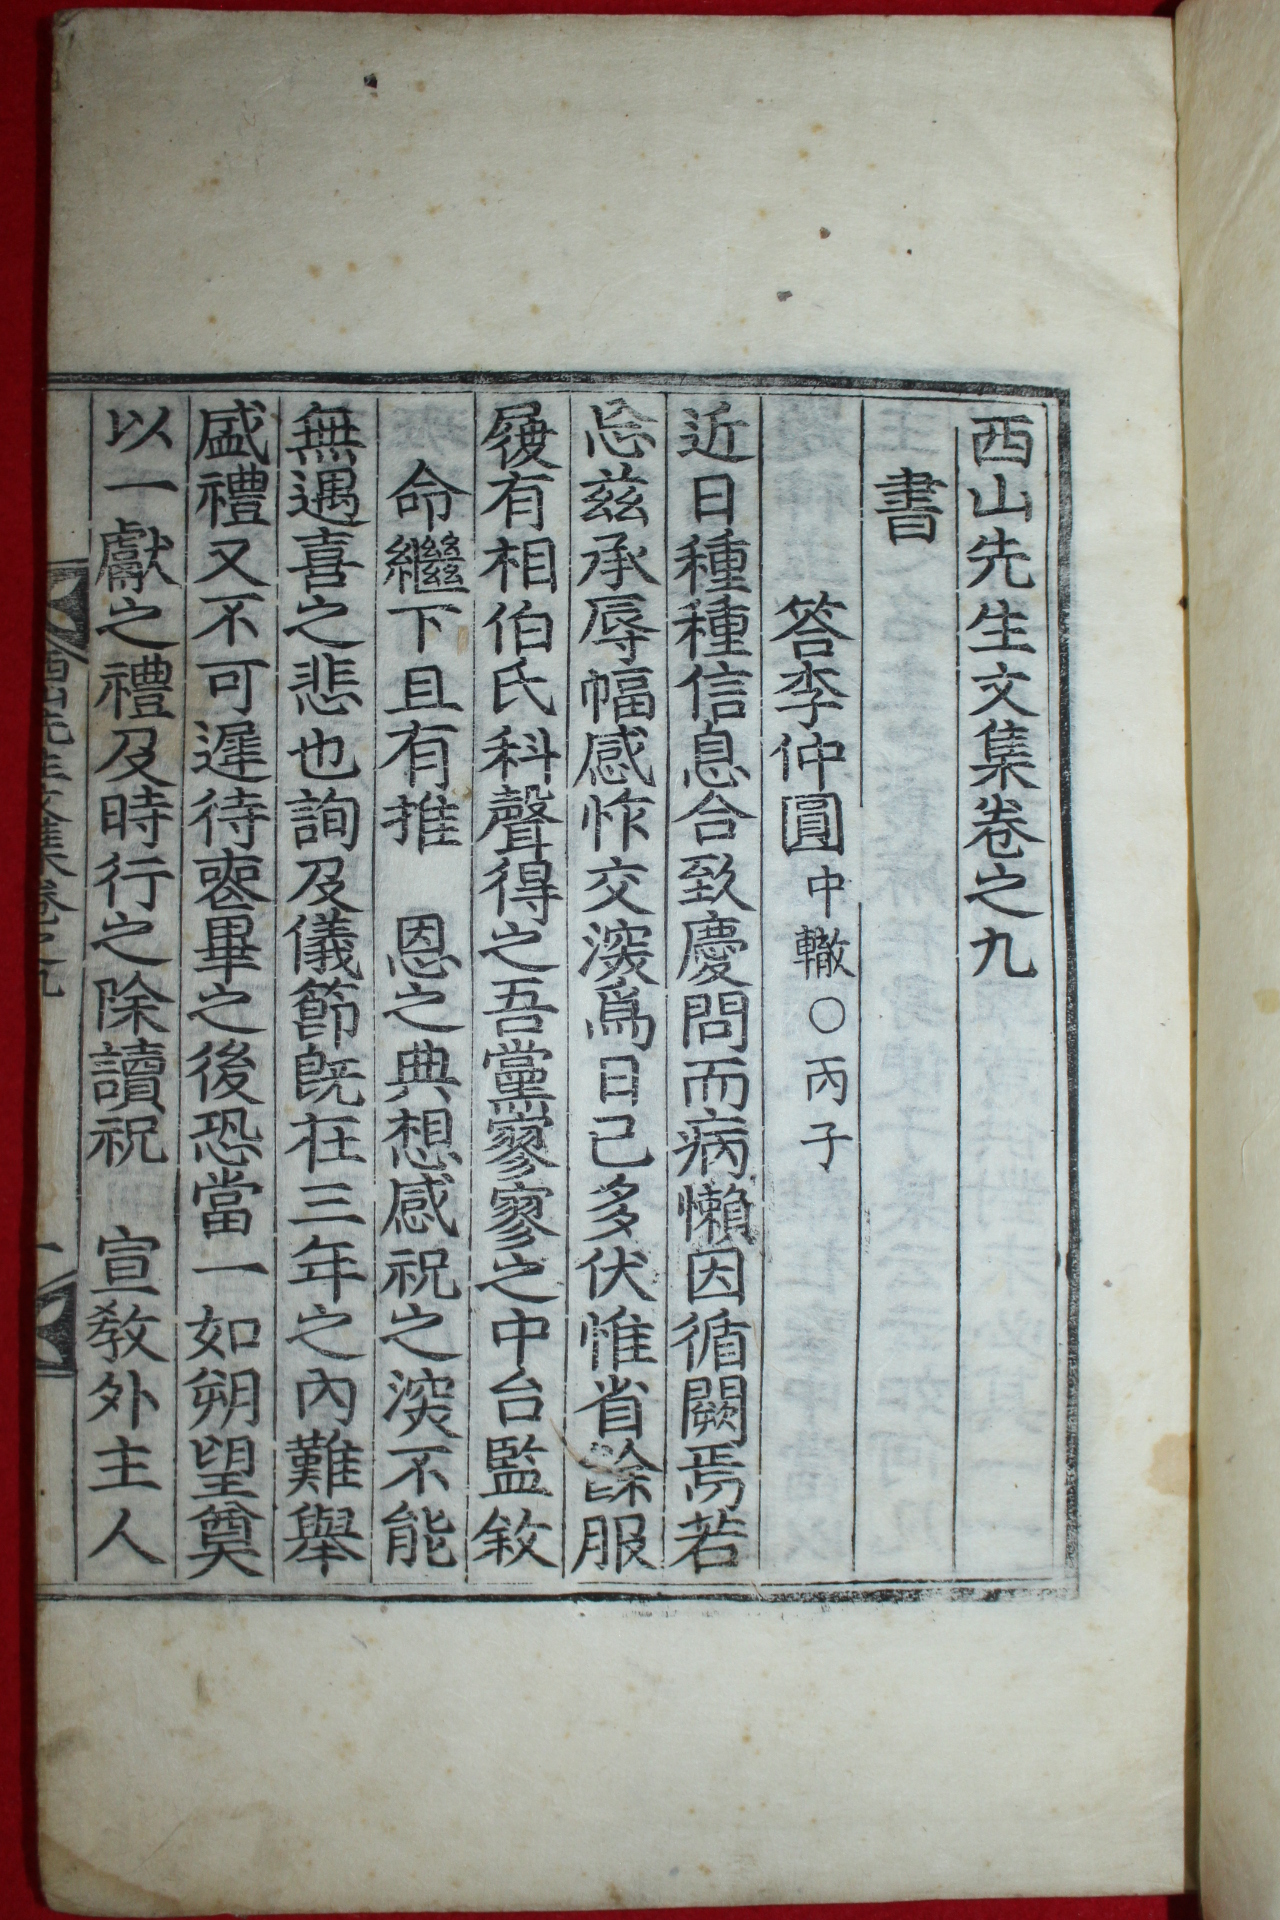 西山先生文集卷之九
書
答李仲圓中轍○丙子
近日種種信息合致慶問而病懶因循闕焉若
忘玆承辱幅感怍交深爲日已多伏惟省餘服
履有相伯氏科聲得之吾黨寥寥之中台監敘
命繼下且有推 恩之典想感祝之深不能
無遇喜之悲也詢及儀節旣在三年之內難擧
盛禮又不可遲待喪畢之後恐當一如朔望奠
以一獻之禮及時行之除讀祝 宣敎外主人
西山先生文集卷之九
一